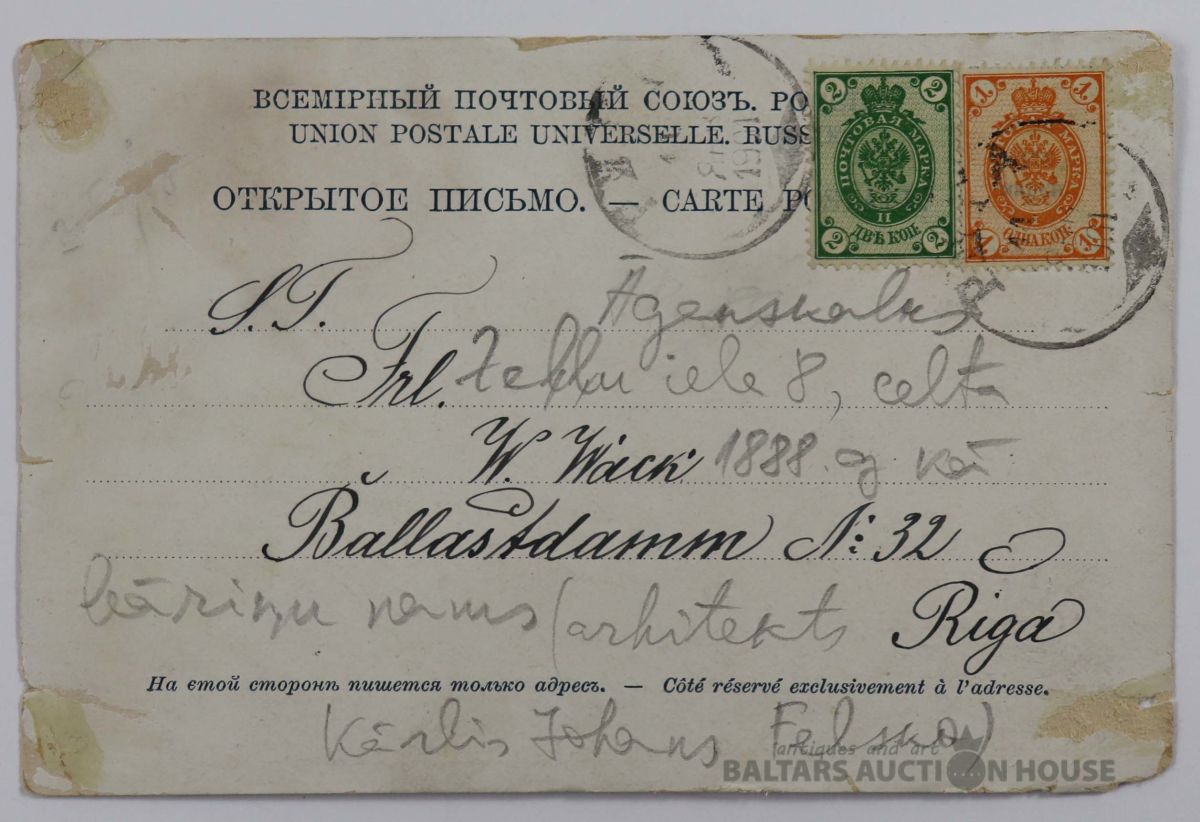 ВСЕМІРНЫЙ ПОЧТОВЫЙ СОЮЗЪ. РО
UNION POSTALE UNIVERSELLE. RUSS
ОТКРЫТОЕ ПИСЬМО. — CARTE PO
2 2
ПОЧТОВАЯ МАРКА
II
ДВѢ КОП.
2 2
1 1
МАРКА
ОДНА КОП.
1 1
1901
S. T. Āgenskalns
Frl. ielā 8, celta
W. Wäck 1888. g kā
Ballastdamm №: 32
bāriņu nams (arhitekts Riga
На етой сторонѣ пишется только адресъ. — Côté réservé exclusivement à l'adresse.
Kārlis Johans Felsko)
antiques and art
BALTARS AUCTION HOUSE